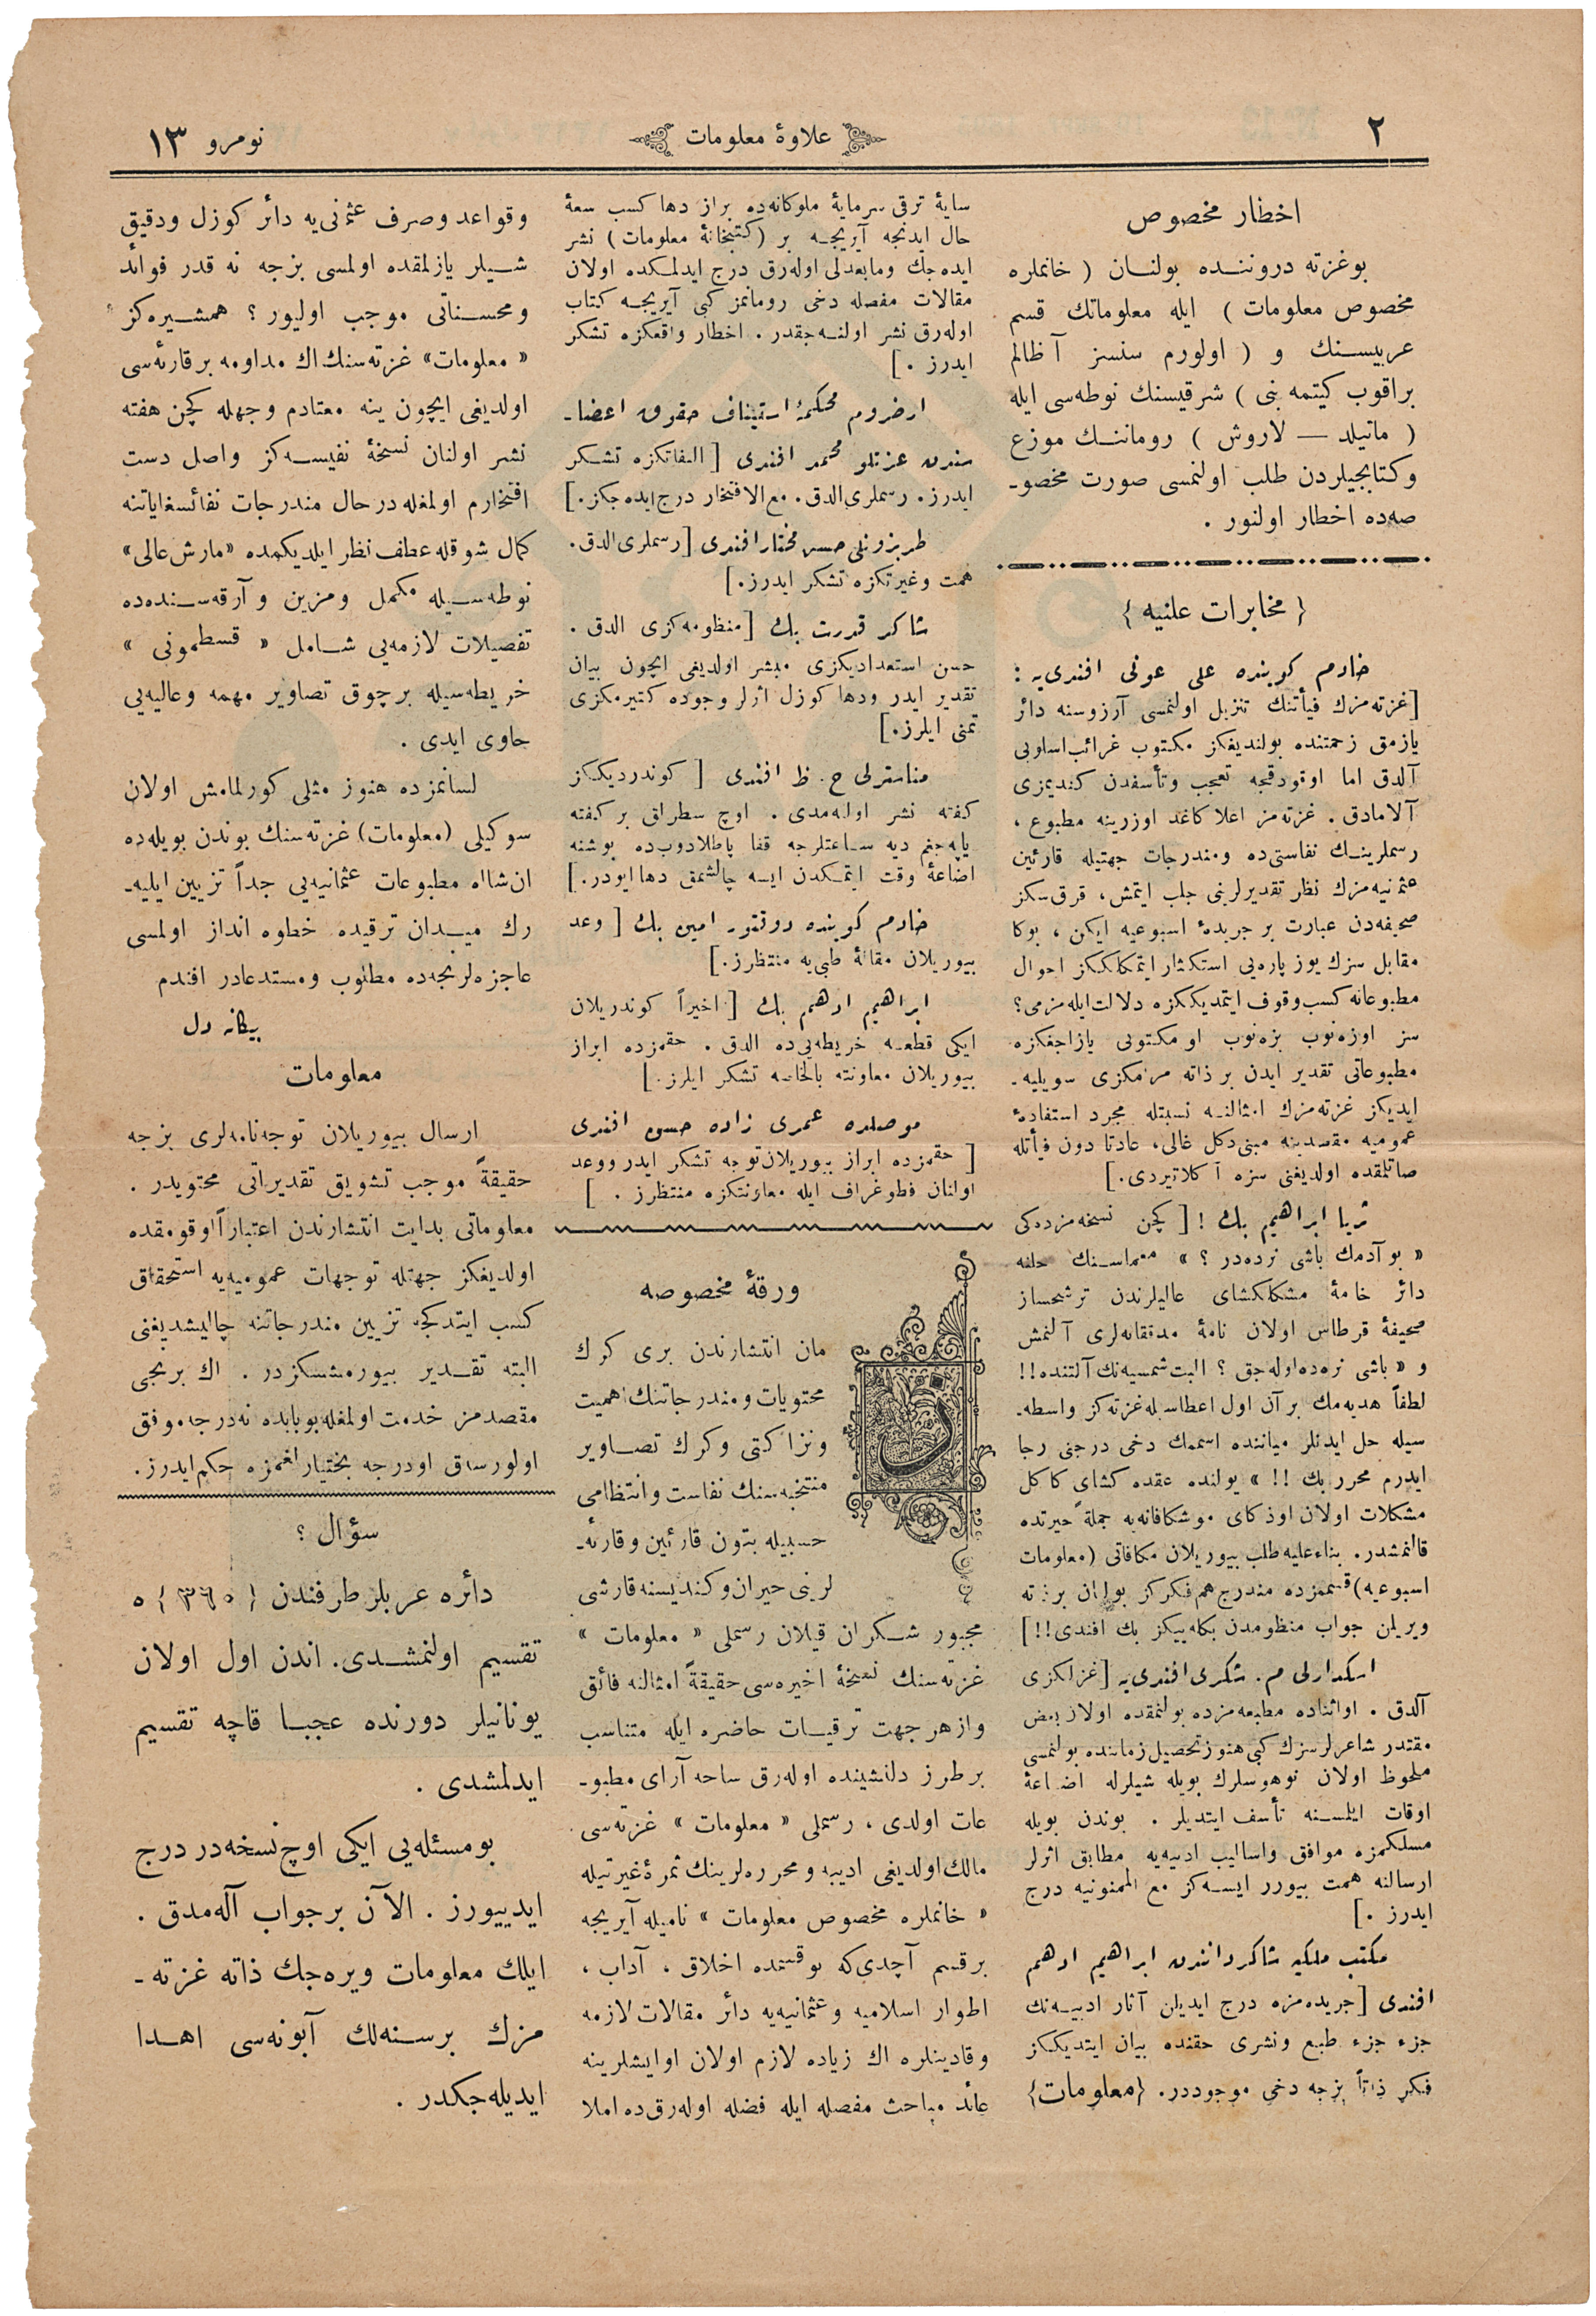 ٢
علاوۀ معلومات
نومرو ١٣
اخطار مخصوص
بوغزته دروننده بولنان ( خانملره
مخصوص معلومات ) ايله معلوماتك قسم
عربيسنك و ( اولورم سنسز آ ظالم
براقوب كيتمه بنى ) شرقيسنك نوطه‌سى ايله
( ماتيلد — لاروش ) روماننك موزع
وكتابجيلردن طلب اولنمسى صورت مخصو-
صه‌ده اخطار اولنور .
{ مخابرات علنيه }
خادم كوينده على عونى افندى‌يه :
[غزته‌مزك فيأتنك تنزيل اولنمسى آرزوسنه دائر
يازمق زحمتنده بولنديغكز مكتوب غرائب‌اسلوبى
آلدق اما اوقودقجه تعجب وتأسفدن كنديمزى
آلامادق . غزته‌مز اعلا كاغد اوزرينه مطبوع ،
رسملرينك نفاستى‌ده ومندرجات جهتيله قارئين
عثمانيه‌مزك نظر تقديرلرينى جلب ايتمش، قرق‌سكز
صحيفه‌دن عبارت بر جريدۀ اسبوعيه ايكن ، بوكا
مقابل سزك يوز پاره‌يى استكثار ايتمكلككز احوال
مطبوعاته كسب وقوف ايتمديككزه دلالت‌ايله‌مزمى؟
سز اوزه‌نوب بزه‌نوب او مكتوبى يازاجغكزه
مطبوعاتى تقدير ايدن بر ذاته مرامكزى سويليه-
ايديكز غزته‌مزك امثالنه نسبتله مجرد استفادۀ
عموميه مقصدينه مبنى‌دكل غالى، عادتا دون فيأتله
صاتلمقده اولديغنى سزه آكلاتيردى.]
ثريا ابراهيم بك ! [ كچن نسخه‌مزده‌كى
« بو آدمك باشى نرده‌در ؟ » معماسنك حلنه
دائر خامۀ مشكلكشاى عاليلرندن ترشحساز
صحيفۀ قرطاس اولان نامۀ مدققانه‌لرى آلنمش
و « باشى نره‌ده‌اوله‌جق ؟ البت شمسيه‌نك آلتنده!!
لطفاً هديه‌مك بر آن اول اعطاسيله‌غزته‌كز واسطه-
سيله حل ايدنلر مياننده اسممك دخى درجنى رجا
ايدرم محرر بك !! » يولنده عقده كشاى كاكل
مشكلات اولان اوذكاى موشكافانه‌يه جملةً حيرتده
قالنمشدر. بناءعليه‌طلب بيوريلان مكافاتى (معلومات
اسبوعيه) قسممزده مندرج هم‌فكركز بولنان برذاته
ويريلن جواب منظومدن بكله‌ييكز بك افندى!!]
اسكدارلى م. شكرى افندى‌يه [غزلكزى
آلدق . اواثناده مطبعه‌مزده بولنمقده اولان بعض
مقتدر شاعرلرسزك كبى هنوز تحصيل زماننده بولنمسى
ملحوظ اولان نوهوسلرك بويله شيلرله اضاعۀ
اوقات ايلمسنه تأسف ايتديلر . بوندن بويله
مسلكمزه موافق واساليب ادبيه‌يه مطابق اثرلر
ارسالنه همت بيورر ايسه‌كز مع الممنونيه درج
ايدرز .]
مكتب ملكيه شاكرداننده ابراهيم ادهم
افندى [جريده‌مزه درج ايديلن آثار ادبيه‌نك
جزء جزء طبع ونشرى حقنده بيان ايتديككز
فكر ذاتاً بزجه دخى موجوددر. {معلومات}
سايۀ ترقى سرمايۀ ملوكانه‌ده براز دها كسب سعۀ
حال ايدنجه آيريجه بر (كتبخانۀ معلومات) نشر
ايده‌جك ومابعدلى اوله‌رق درج ايدلمكده اولان
مقالات مفصله دخى رومانمز كبى آيريجه كتاب
اوله‌رق نشر اولنه‌جقدر . اخطار واقعكزه تشكر
ايدرز .]
ارضروم محكمۀ استيناف حقوق اعضا-
سندن عزتلو محمد افندى [التفاتكزه تشكر
ايدرز. رسملرى‌الدق. مع‌الافتخار درج‌ايده‌جكز.]
طربزونلى حسن مختار افندى [رسملرى الدق.
همت وغيرتكزه تشكر ايدرز.]
شاكر قدرت بك [منظومه‌كزى الدق .
حسن استعداديكزى مبشر اولديغى ايچون بيان
تقدير ايدر ودها كوزل اثرلر وجوده كتيرمكزى
تمنى ايلرز.]
مناسترلى ح. ظ افندى [ كوندرديككز
كفته نشر اوله‌مدى . اوچ سطرلق بر كفته
ياپه‌جغم ديه ساعتلرجه قفا پاطلادوب‌ده بوشنه
اضاعۀ وقت ايتمكدن ايسه چالشمق دها ايودر.]
خادم كوينده دوقتور امين بك [ وعد
بيوريلان مقالۀ طبيه‌يه منتظرز.]
ابراهيم ادهم بك [ اخيراً كوندريلان
ايكى قطعه خريطه‌يى‌ده الدق . حقمزده ابراز
بيوريلان معاونته بالخاصه تشكر ايلرز.]
موصلده عمرى زاده حسن افندى
[ حقمزده ابراز بيوريلان‌توجه تشكر ايدر ووعد
اولنان فطوغراف ايله معاونتكزه منتظرز . ]
ورقۀ مخصوصه
ز
مان انتشارندن برى كرك
محتويات ومندرجاتنك اهميت
ونزاكتى وكرك تصاوير
منتخبه‌سنك نفاست وانتظامى
حسبيله بتون قارئين وقارئه-
لرينى حيران وكنديسنه قارشى
مجبور شكران قيلان رسملى « معلومات »
غزته‌سنك نسخۀ اخيره‌سى حقيقةً امثالنه فائق
واز هر جهت ترقيات حاضره ايله متناسب
بر طرز دلنشينده اوله‌رق ساحه آراى مطبو-
عات اولدى ، رسملى « معلومات » غزته‌سى
مالك‌اولديغى اديبه ومحرره‌لرينك ثمرۀغيرتيله
« خانملره مخصوص معلومات » ناميله آيريجه
برقسم آچدى‌كه بوقسمده اخلاق ، آداب ،
اطوار اسلاميه وعثمانيه‌يه دائر مقالات لازمه
وقادينلره اك زياده لازم اولان اوايشلرينه
عائد مباحث مفصله ايله فضله اوله‌رق‌ده املا
وقواعد وصرف عثمانى‌يه دائر كوزل ودقيق
شيلر يازلمقده اولمسى بزجه نه قدر فوائد
ومحسناتى موجب اوليور ؟ همشيره‌كز
« معلومات» غزته‌سنك‌اك مداومه برقارئه‌سى
اولديغى ايچون ينه معتادم وجهله كچن هفته
نشر اولنان نسخۀ نفيسه‌كز واصل دست
افتخارم اولمغله درحال مندرجات نفائسغاياتنه
كمال شوقله عطف نظر ايلديكمده «مارش عالى»
نوطه‌سيله مكمل ومزين وآرقه‌سنده‌ده
تفصيلات لازمه‌يى شامل « قسطمونى »
خريطه‌سيله برچوق تصاوير مهمه وعاليه‌يى
حاوى ايدى .
لسانمزده هنوز مثلى كورلمامش اولان
سوكيلى (معلومات) غزته‌سنك بوندن بويله‌ده
ان‌شاالله مطبوعات عثمانيه‌يى جداً تزيين ايليه-
رك ميدان ترقيده خطوه انداز اولمسى
عاجزه‌لرنجه‌ده مطلوب ومستدعادر افندم
بيكانه دل
معلومات
ارسال بيوريلان توجه‌نامه‌لرى بزجه
حقيقةً موجب تشويق تقديراتى محتويدر .
معلوماتى بدايت انتشارندن اعتباراً اوقومقده
اولديغكز جهتله توجهات عموميه‌يه استحقاق
كسب ايتدكجه تزيين مندرجاتنه چاليشديغنى
البته تقدير بيورمشسكزدر . اك برنجى
مقصدمز خدمت اولمغله بوبابده نه‌درجه‌موفق
اولورسه‌ق اودرجه بختيارلغمزه حكم‌ايدرز.
سؤال ؟
دائره عربلر طرفندن { ٣٦٠ } ه
تقسيم اولنمشدى. اندن اول اولان
يونانيلر دورنده عجبا قاچه تقسيم
ايدلمشدى .
بو مسئله‌يى ايكى اوچ نسخه‌در درج
ايدييورز . الآن برجواب آله‌مدق .
ايلك معلومات ويره‌جك ذاته غزته -
مزك برسنه‌لك آبونه‌سى اهدا
ايديله‌جكدر .